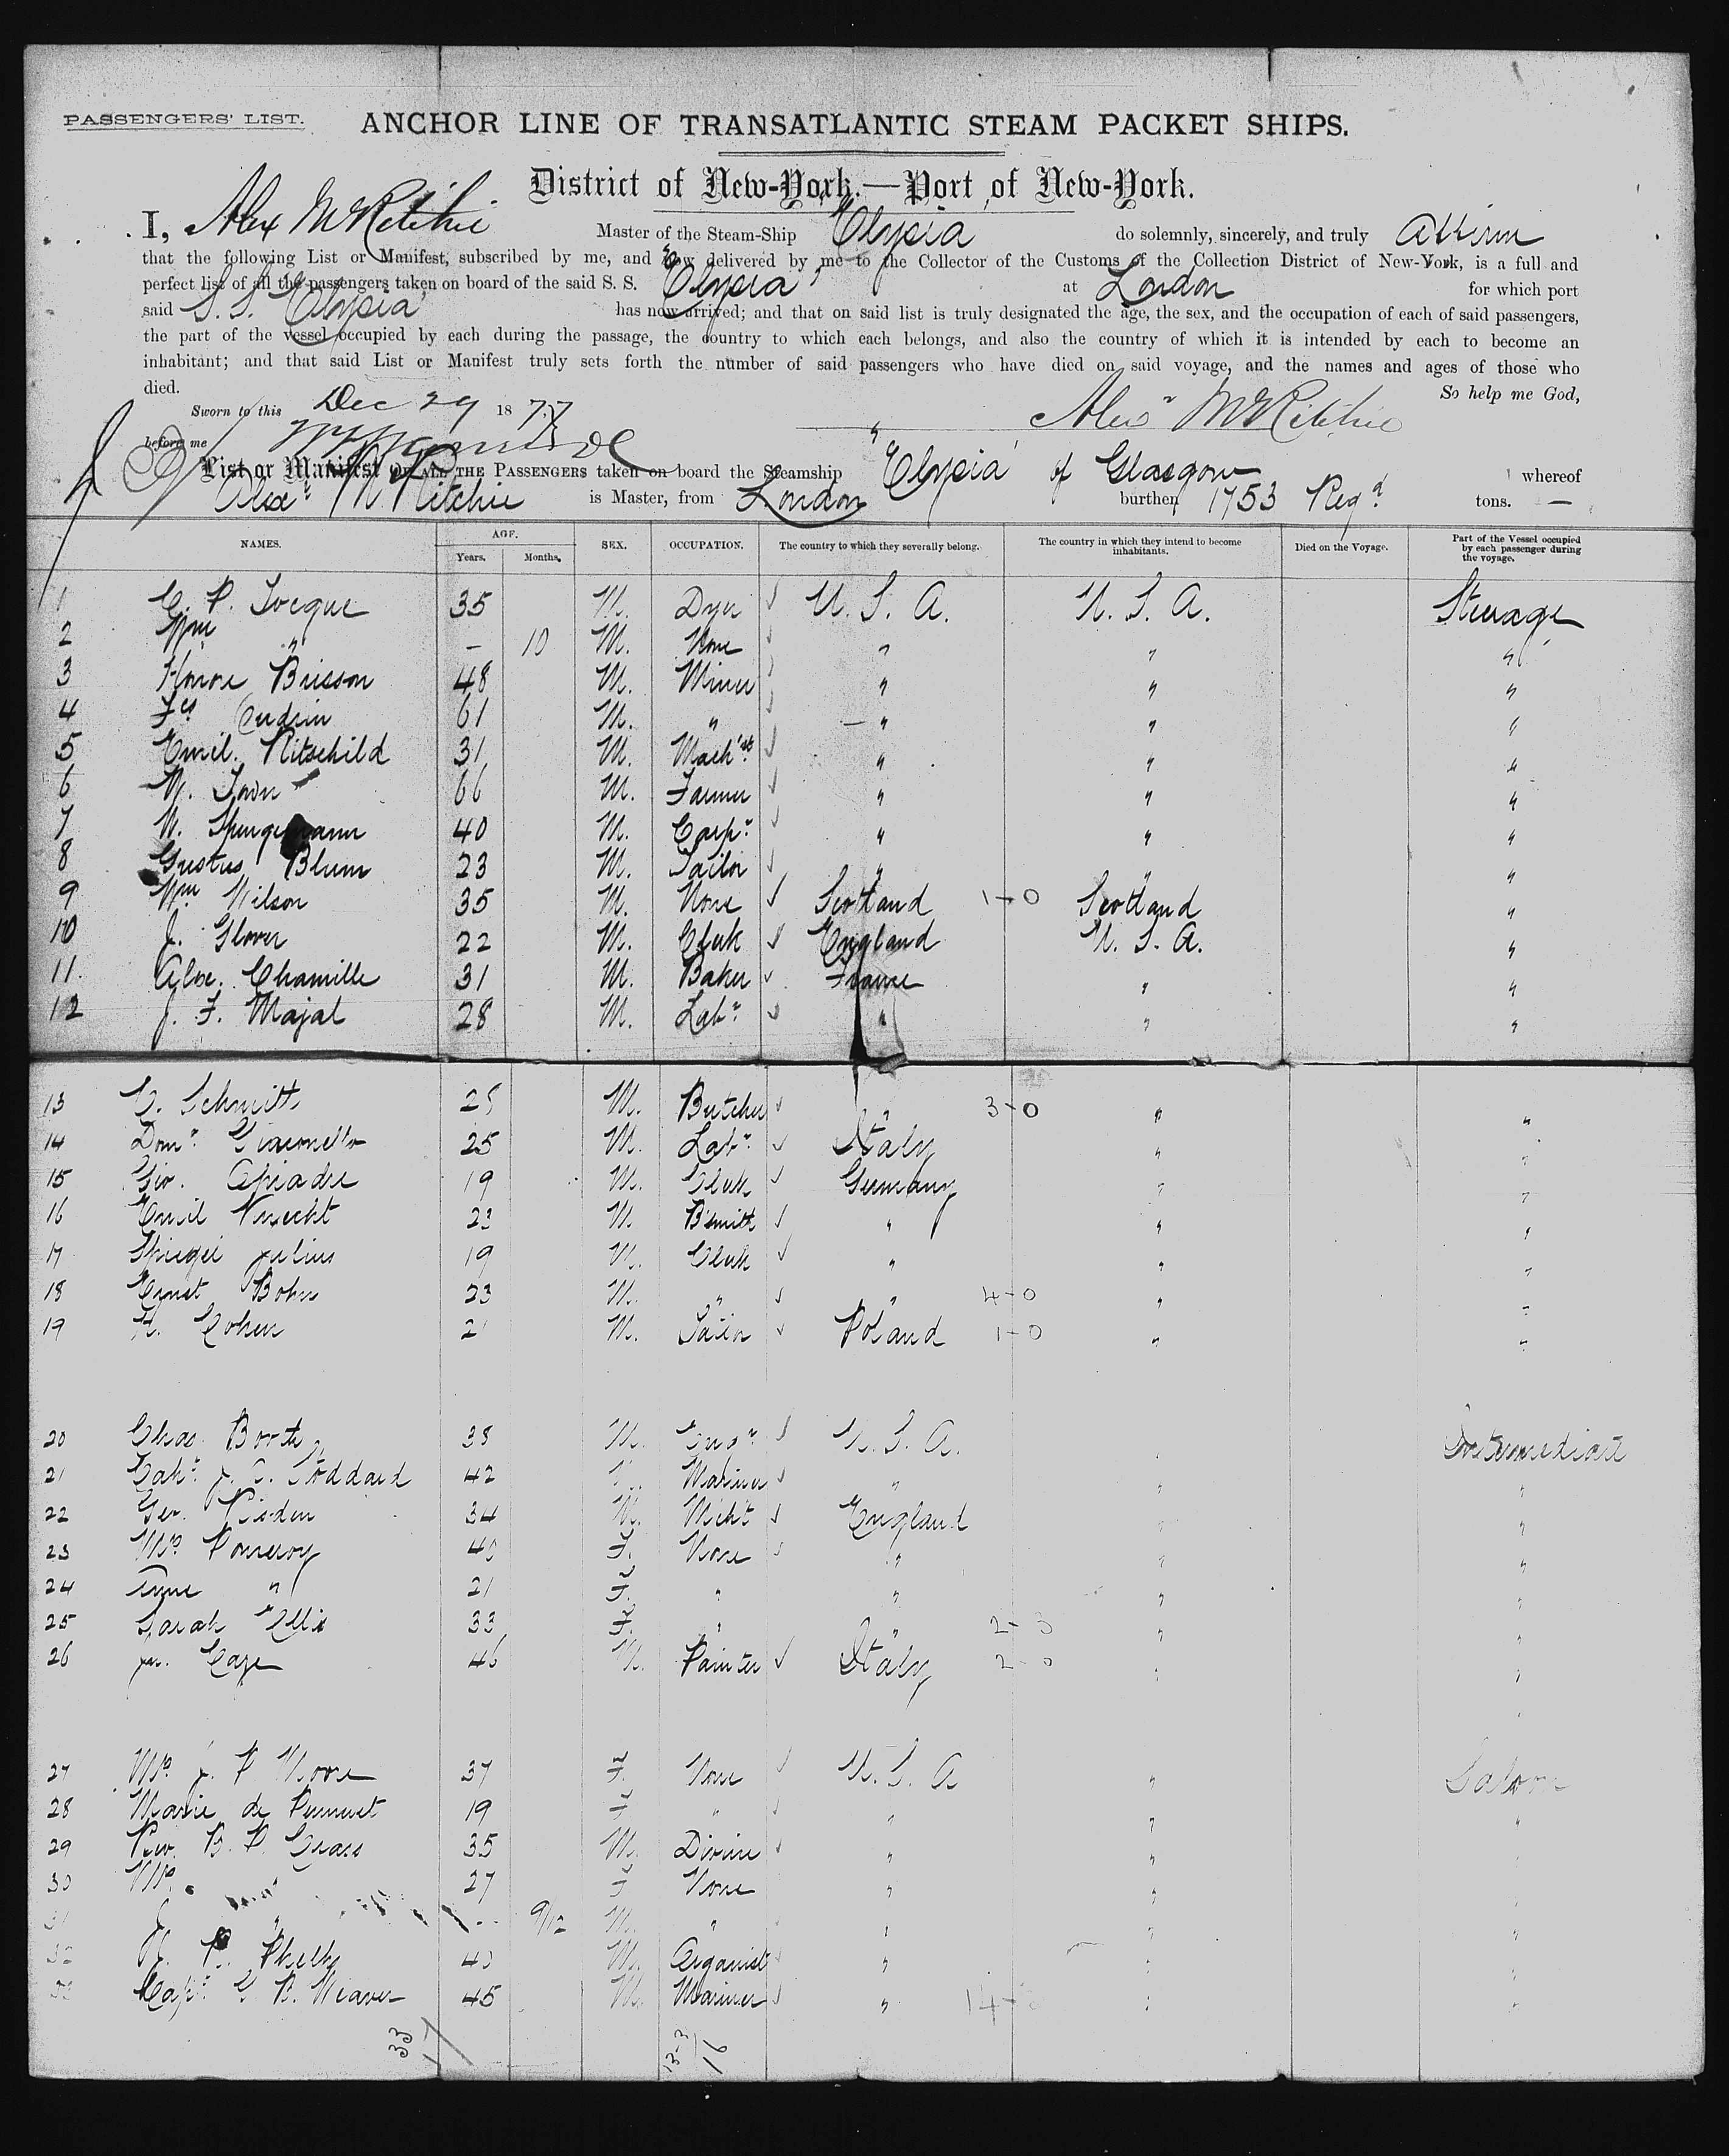 PASSENGERS' LIST.
ANCHOR LINE OF TRANSATLANTIC STEAM PACKET SHIPS.
District of New-York.—Port of New-York.
I, Alex McRitchie Master of the Steam-Ship "Elysia" do solemnly, sincerely, and truly affirm
that the following List or Manifest, subscribed by me, and now delivered by me to the Collector of the Customs of the Collection District of New-York, is a full and
perfect list of all the passengers taken on board of the said S. S. "Elysia" at London for which port
said S. S. "Elysia" has now arrived; and that on said list is truly designated the age, the sex, and the occupation of each of said passengers,
the part of the vessel occupied by each during the passage, the country to which each belongs, and also the country of which it is intended by each to become an
inhabitant; and that said List or Manifest truly sets forth the number of said passengers who have died on said voyage, and the names and ages of those who
died. So help me God,
Sworn to this Dec 29 1877 Alexr McRitchie
before me
List or Manifest OF ALL THE PASSENGERS taken on board the Steamship "Elysia" of Glasgow whereof
Alexr McRitchie is Master, from London burthen 1753 Regd tons. —
NAMES. AGE. Years. Months. SEX. OCCUPATION. The country to which they severally belong. The country in which they intend to become inhabitants. Died on the Voyage. Part of the Vessel occupied by each passenger during the voyage.
1 C. P. Jocque 35 M. Dyer U. S. A. U. S. A. Steerage
2 Wm " — 10 M. None " " "
3 Honore Brisson 48 M. Miner " " "
4 Fcs 61 M. " — " " "
5 Emil Ritschild 31 M. Mach'st " " "
6 66 M. Farmer " " "
7 40 M. Carpr " " "
8 Gustus Blum 23 M. Tailor " " "
9 Wm Wilson 35 M. None Scotland 1-0 Scotland "
10 J. Glover 22 M. Clerk England U. S. A. "
11 Alex. Chamille 31 M. Baker France " "
12 J. F. Majal 28 M. Labr " " "
13 C. Schmitt M. Butcher " 3-0 " "
14 Domo 25 M. Labr Italy " "
15 Gio. 19 M. Clerk Germany " "
16 Emil Knecht 23 M. B'smith " " "
17 Spiegel Julius 19 M. Clerk " " "
18 Ernst Bohn 23 M. " " 4-0 " "
19 H. Cohen 21 M. Tailor Poland 1-0 " "
20 Chas. Booth 38 M. U. S. A. " Intermediate
21 Capt J. C. Stoddard 42 M. Mariner " " "
22 Geo. 34 M. Mcht England " "
23 Mrs Pomeroy 40 F. None " " "
24 Anne " 21 F. " " " "
25 Sarah Ellis 33 F. " " 2-3 " "
26 Jas. Cape 46 M. Painter Italy 2-0 " "
27 Mrs J. P. Moore 37 F. None U. S. A " Saloon
28 Marie de 19 F " " " "
29 Rev. B. P. Cross 35 M. Divine " " "
30 Mrs " 27 F None " " "
31 J. " — 9/12 M. " " " "
32 Phelps 40 M. Organist " " "
33 Capt G. B. Weaver 45 M. Mariner " 14- " "
33
17
13-3
16